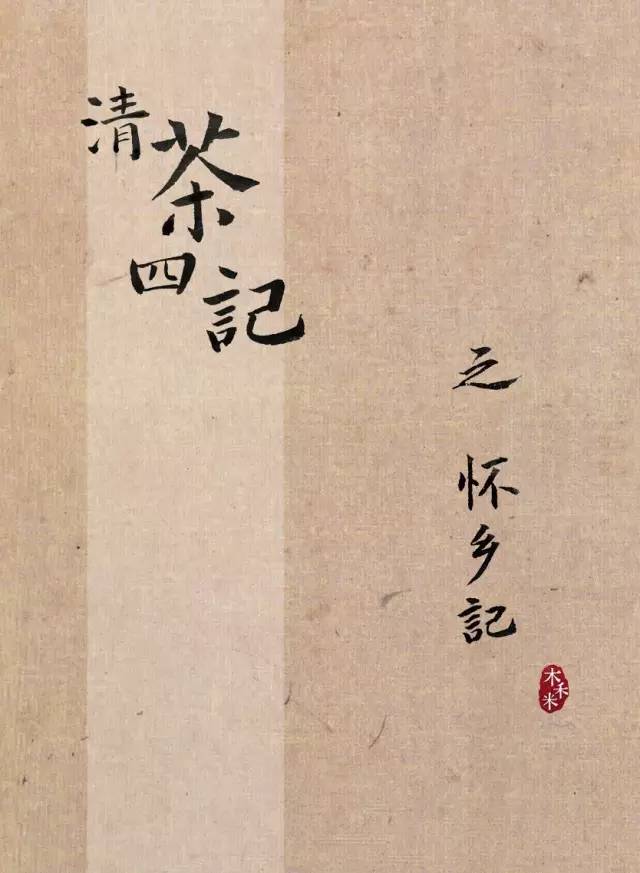 清茶四記
之 怀乡記
木禾米